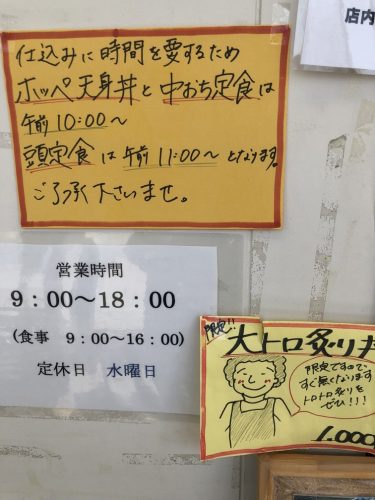 店内
仕込みに時間を要するため
ホッペ天身丼と中おち定食は
午前10:00～
頭定食は午前11:00～となります。
ご了承下さいませ。
営業時間
9：00～18：00
(食事 9：00～16：00)
定休日 水曜日
限定!!
大トロ炙り丼
限定ですので
すぐ無くなります
トロトロ炙りを
ぜひ!!!
1,000